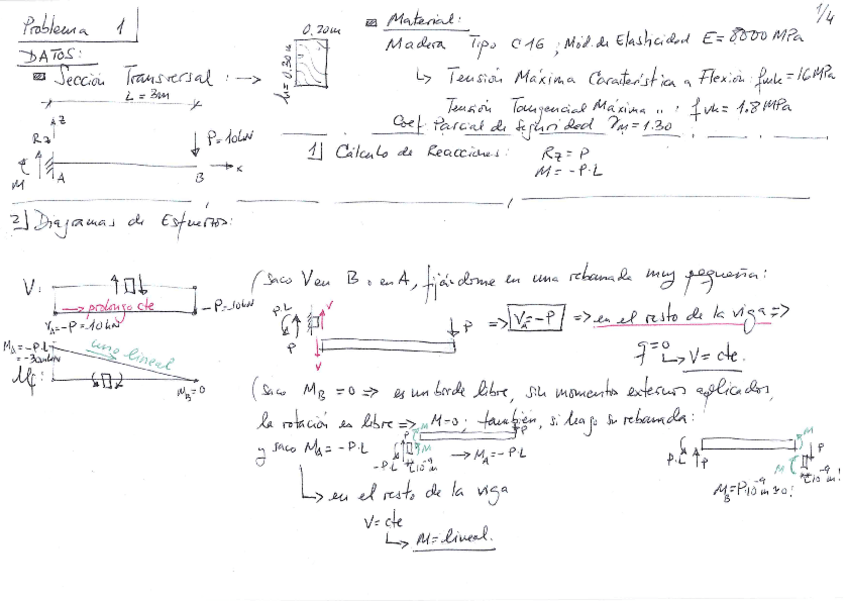 Problema 1
1/4
DATOS:
Sección Transversal:
0.20m
h=0.30m
Material:
Madera Tipo C16; Mód. de Elasticidad E=8000 MPa
Tensión Máxima Característica a Flexión: fmk=16MPa
Tensión Tangencial Máxima " : fvk=1.8MPa
Coef. Parcial de Seguridad γM=1.30
L=3m
z
Rz
P=10kN
x
M
A
B
1) Cálculo de Reacciones: Rz=P
M=-P·L
2) Diagramas de Esfuerzos:
V:
prolongo cte
-P=-10kN
VA=-P=-10kN
(Saco V en B o en A, fijándome en una rebanada muy pequeña:
P·L
P
V
V
P
=> VA=-P => en el resto de la viga =>
q=0
V=cte.
MA=-P·L
=-30kNm
uno lineal
Mf:
MB=0
(Saco MB=0 => es un borde libre, sin momentos externos aplicados,
la rotación es libre => M=0; también, si hago su rebanada:
y saco MA=-P·L
P
-P·L
M
M
10⁻⁹m
P
→ MA=-P·L
P·L
P
M
M
P
10⁻⁹m!
MB=P·10⁻⁹m≃0!
en el resto de la viga
V=cte
M=lineal.